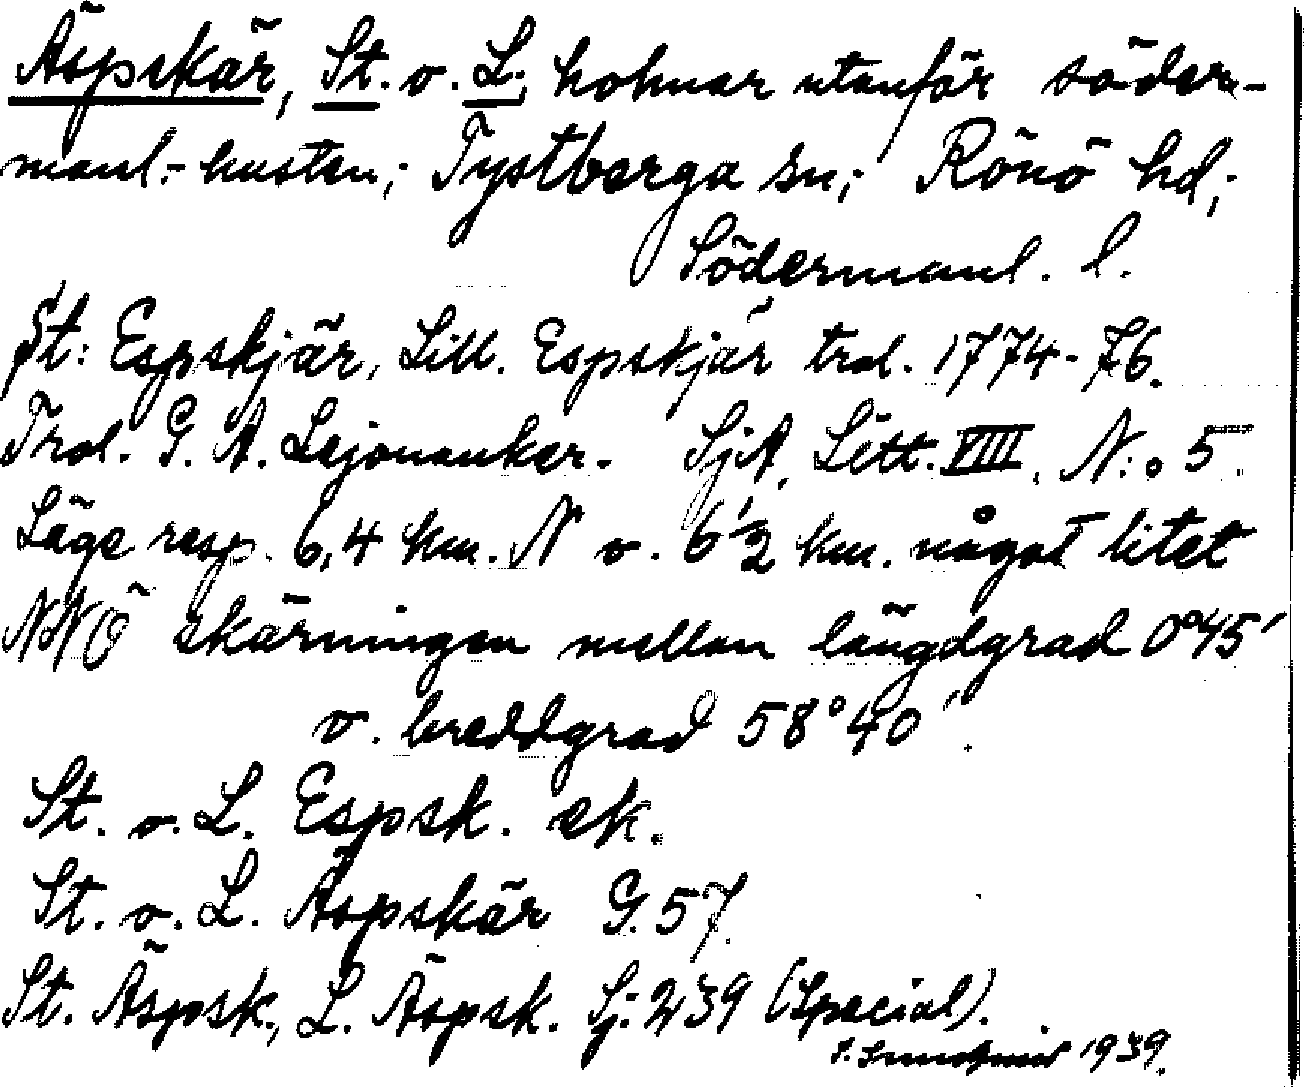 Äspskär, St. o. L., holmar utanför söder-
manl.-kusten; Tystberga sn; Rönö hd;
Södermanl. l.
St: Espskjär, Lill. Espskjär trol. 1774-76.
Trol. G. A. Lejonanker. SjA, Litt. VIII, N:o 5.
Läge resp. 6,4 km. N o. 6½ km. något litet
NNÖ skärningen mellan längdgrad 0°45'
o. breddgrad 58°40'.
St. o. L. Espsk. ek.
St. o. L. Äspskär G. 57.
St. Äspsk., L. Äspsk. Sj. 239 (Special).
1939.